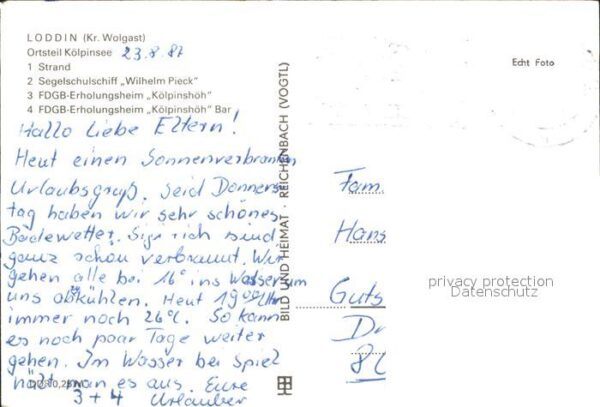 LODDIN (Kr. Wolgast)
Ortsteil Kölpinsee 23.8.87
1 Strand
2 Segelschulschiff „Wilhelm Pieck"
3 FDGB-Erholungsheim „Kölpinshöh"
4 FDGB-Erholungsheim „Kölpinshöh" Bar
Hallo liebe Eltern!
Heut einen Sonnenverbrannten
Urlaubsgruß. Seid Donners-
tag haben wir sehr schönes
Badewetter. sind
ganz schön verbrannt. Wir
gehen alle bei 16° ins Wasser um
uns abkühlen. Heut 19 00 Uhr
immer noch 26°C. So kann
es noch paar Tage weiter
gehen. Im Wasser bei Spiel
hält man es aus. Eure
3 + 4 Urlauber
BILD UND HEIMAT · REICHENBACH (VOGTL)
Echt Foto
Fam.
Hans
Guts
Dr
privacy protection
Datenschutz